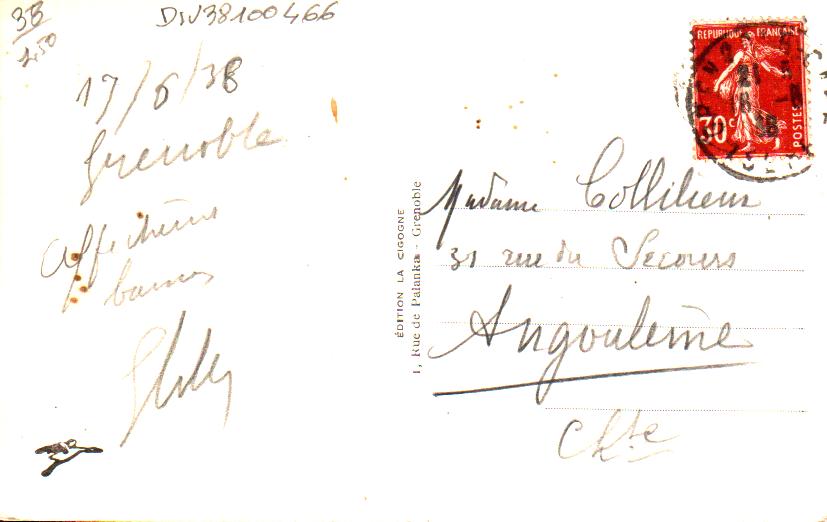 38
2,50
DIV38100466
17/6/38
Grenoble
Affectueux
baisers
ÉDITION LA CIGOGNE
1, Rue de Palanka - Grenoble
REPUBLIQUE FRANÇAISE
30c
POSTES
Madame Collilieux
31 rue du Secours
Angoulême
Chte